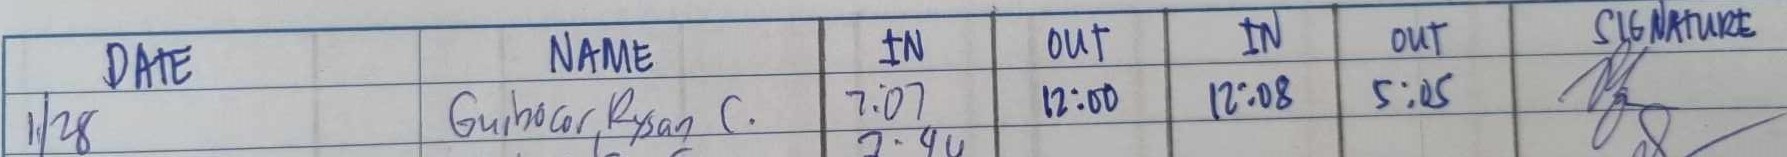 DATE NAME IN OUT IN OUT SIGNATURE
1/28 Guibocor, Rysan C. 7:07 12:00 12:08 5:05